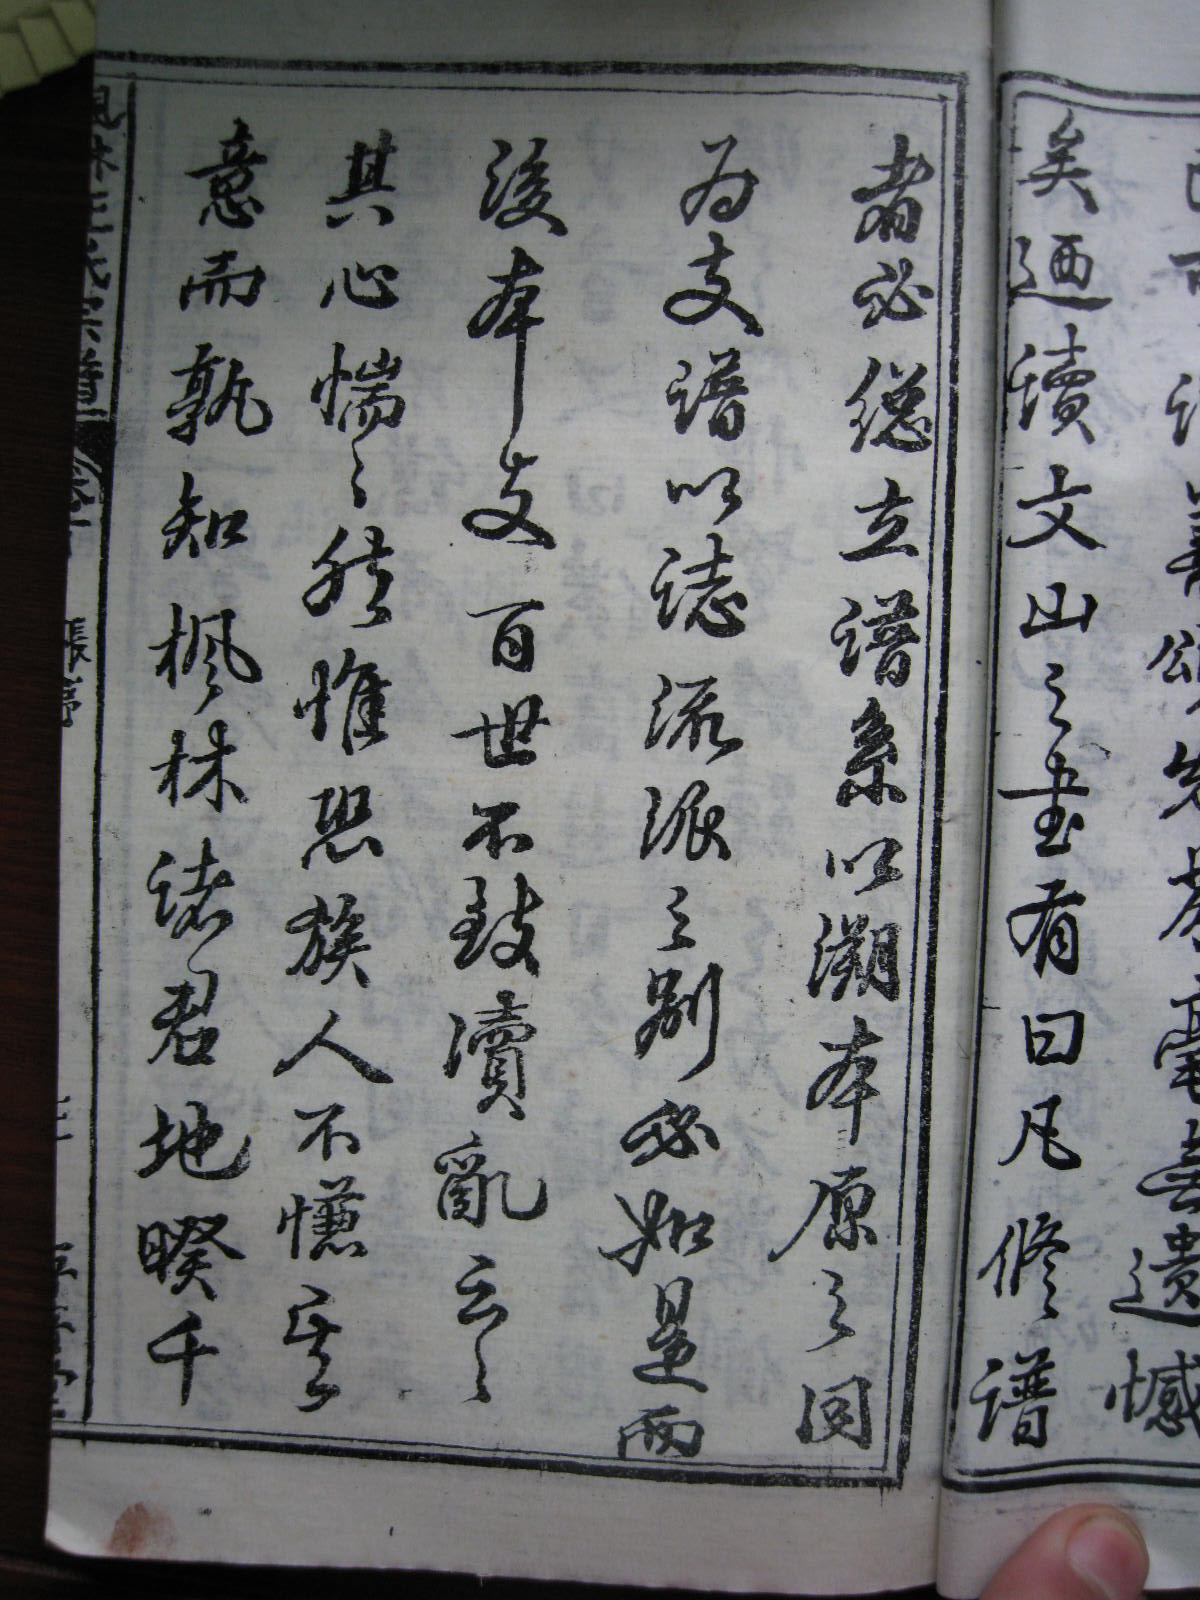 無遺憾
矣迺讀文山之書有曰凡修譜
者必總立譜系以溯本原之同
为支譜以誌流派之別必如是而
後本支百世不致瀆亂云云
其心惴惴然惟恐族人不慊其
意而孰知楓林諸君地暌千
林王氏宗譜
張序